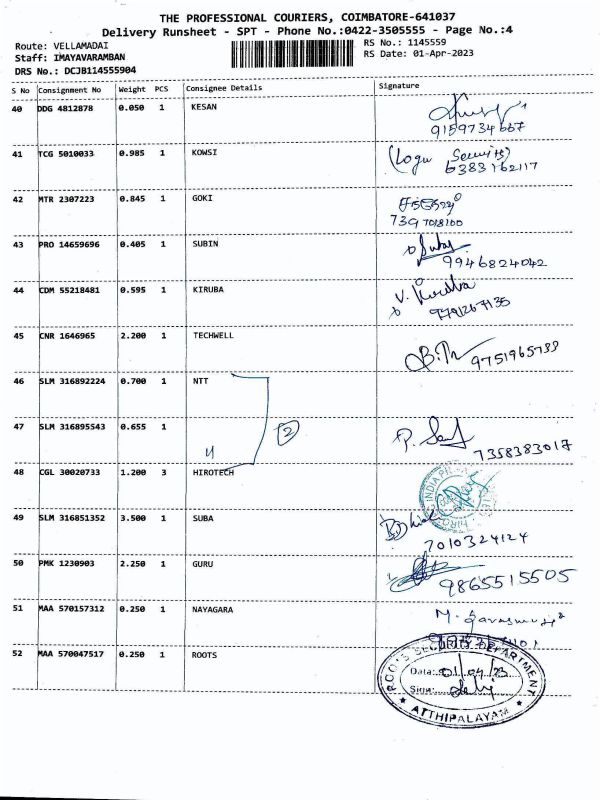 THE PROFESSIONAL COURIERS, COIMBATORE-641037
Delivery Runsheet - SPT - Phone No.:0422-3505555 - Page No.:4
Route: VELLAMADAI RS No.: 1145559
Staff: IMAYAVARAMBAN RS Date: 01-Apr-2023
DRS No.: DCJB114555904
S No Consignment No Weight PCS Consignee Details Signature
40 DDG 4812878 0.050 1 KESAN
9159734667
41 TCG 5010033 0.985 1 KOWSI (Logu Security)
6383162117
42 MTR 2307223 0.845 1 GOKI
7397018100
43 PRO 14659696 0.405 1 SUBIN
9946824042
44 CDM 55218481 0.595 1 KIRUBA V. Kiruba
9791267135
45 CNR 1646965 2.200 1 TECHWELL
9751965733
46 SLM 316892224 0.700 1 NTT
47 SLM 316895543 0.655 1 " 2
7358383017
48 CGL 30020733 1.200 3 HIROTECH
49 SLM 316851352 3.500 1 SUBA
7010324124
50 PMK 1230903 2.250 1 GURU
9865515505
51 MAA 570157312 0.250 1 NAYAGARA
52 MAA 570047517 0.250 1 ROOTS
ROOTS SECURITY DEPARTMENT
Date: 01/04/23
Sign:
ATTHIPALAYAM